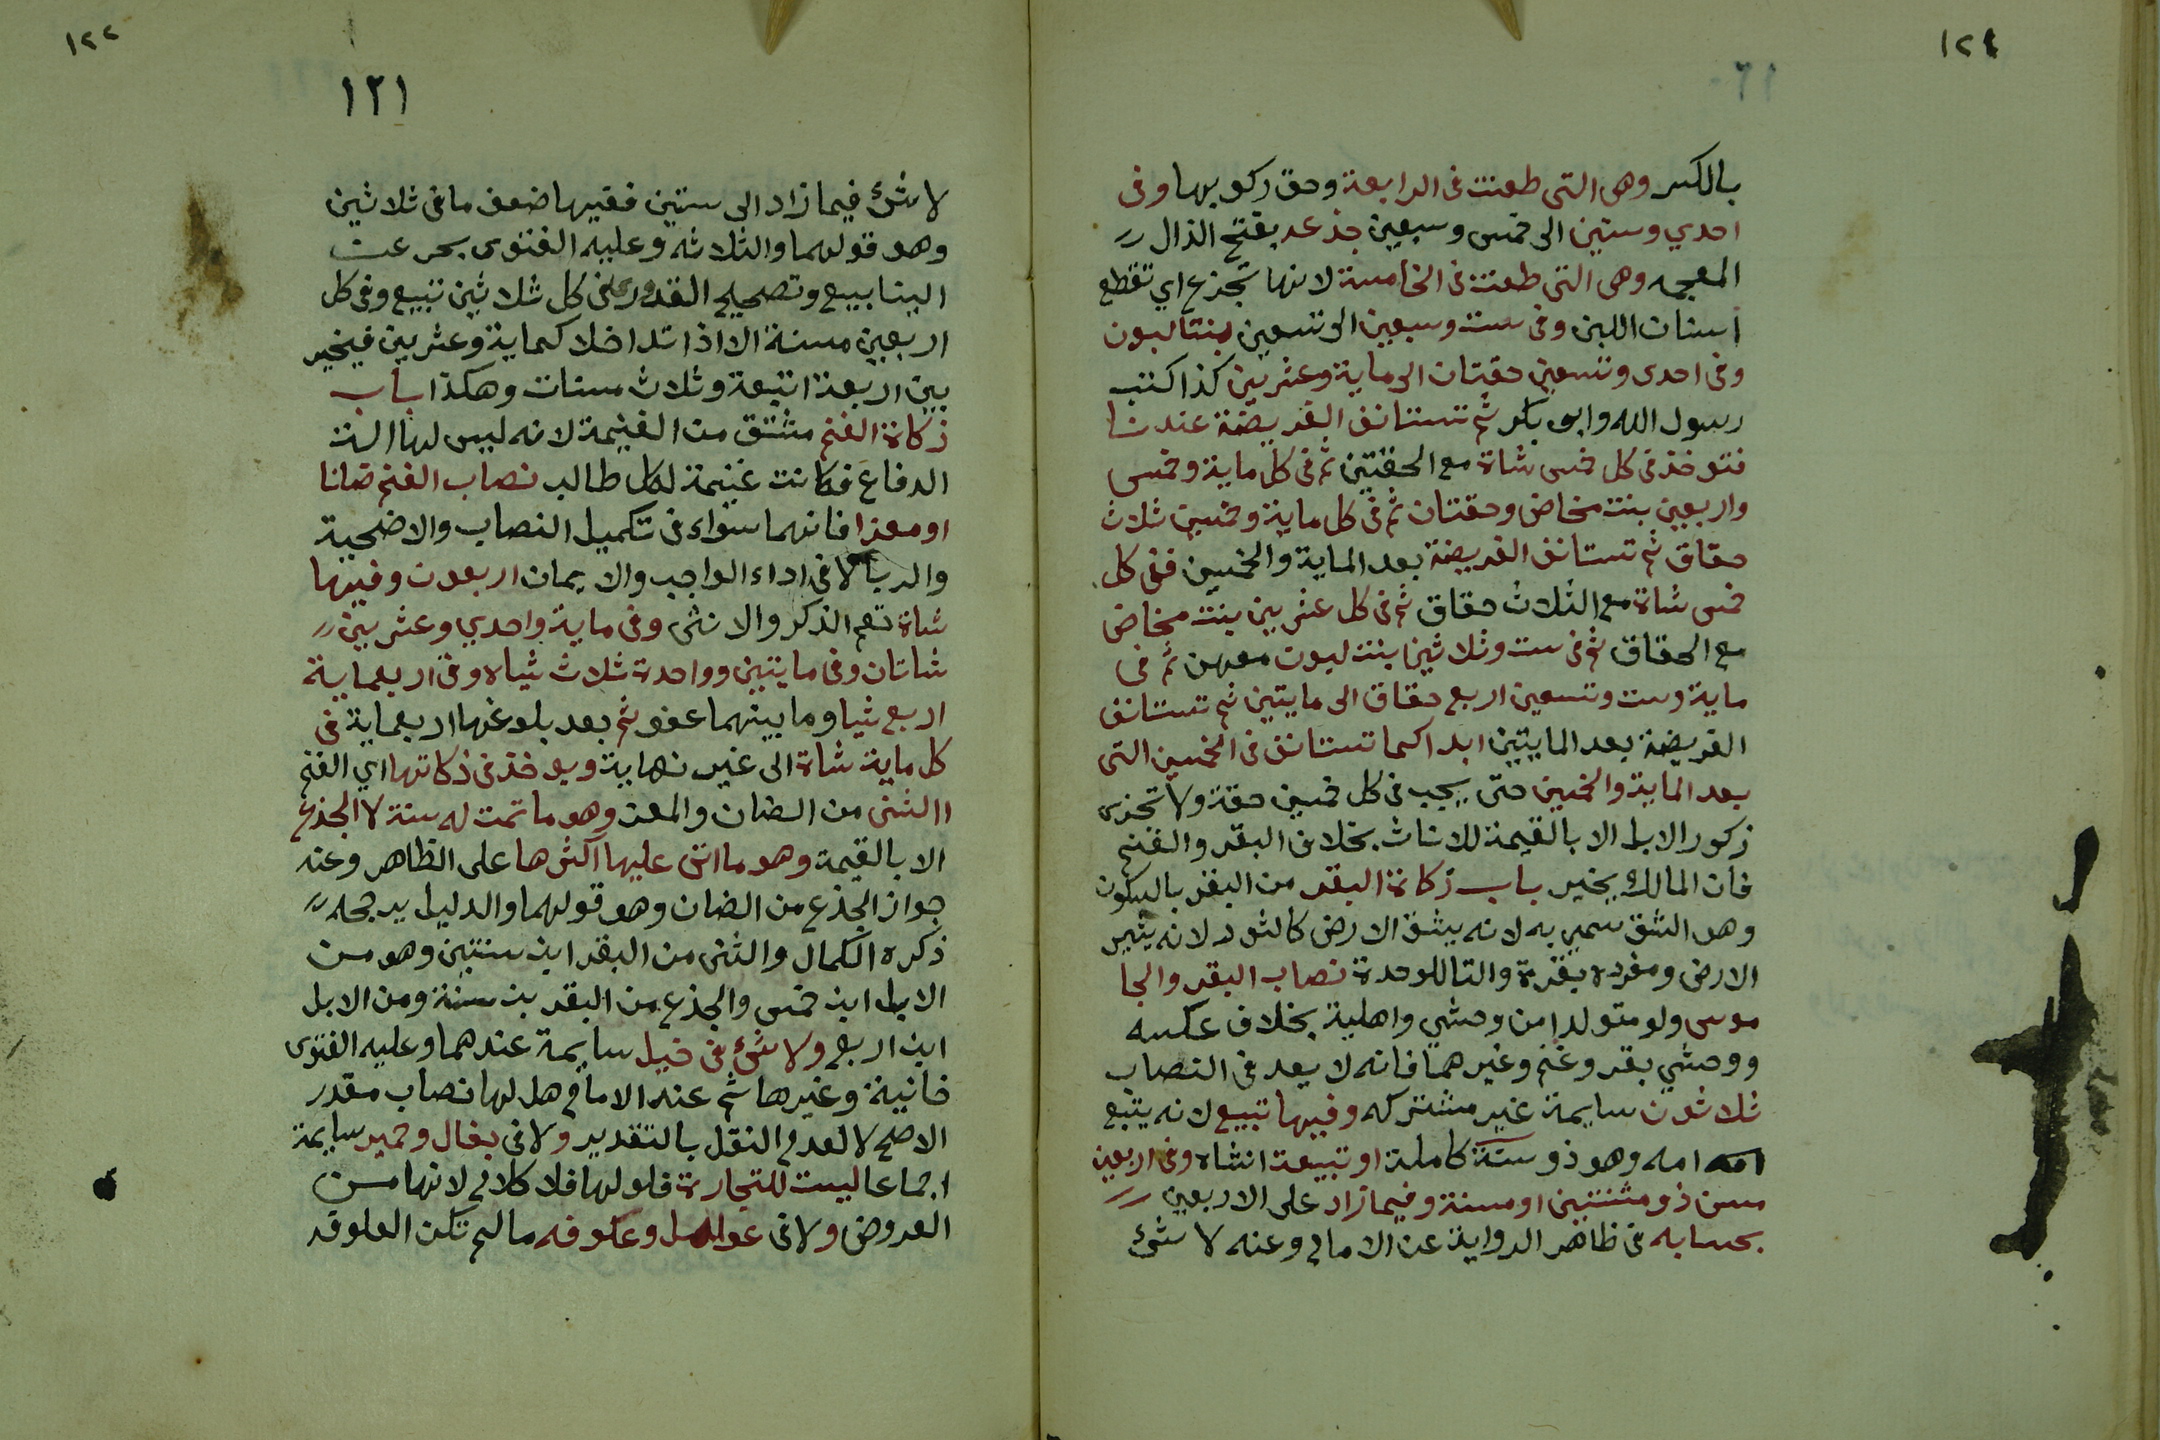 ١٢١
بالكسر وهى التى طعنت فى الرابعة وحق ركوبها وفى
احدي وستين الى خمس وسبعين جذعه بفتح الذال
المعجمه وهى التى طعنت فى الخامسة لانها تجذع اي تقطع
اسنان اللبن وفى ست وسبعين الى تسعين بنتا لبون
وفى احدى وتسعين حقتان الى ماية وعشرين كذا كتب
رسول الله وابو بكر ثم تستانف الفريضة عندنا
فتوخذ فى كل خمس شاة مع الحقتين ثم فى كل ماية وخمس
واربعين بنت مخاض وحقتان ثم فى كل ماية وخمسين ثلاث
حقاق ثم تستانف الفريضة بعد الماية والخمسين ففى كل
خمس شاة مع الثلاث حقاق ثم فى كل عشرين بنت مخاض
مع الحقاق ثم فى ست وثلاثين بنت لبون معهن ثم فى
ماية وست وتسعين اربع حقاق الى مايتين ثم تستانف
الفريضة بعد المايتين ابدا كما تستانف فى الخمسين التى
بعد الماية والخمسين حتى يجب فى كل خمسين حقة ولا تجزى
ذكور الابل الا بالقيمة للاناث بخلاف البقر والغنم
فان المالك يخير باب زكاة البقر من البقر بالسكون
وهو الشق سمي به لانه يشق الارض كالثور لانه يثير
الارض ومفرده بقرة والتا للوحدة نصاب البقر والجا
موس ولو متولدا من وحشي واهلية بخلاف عكسه
ووحشي بقر وغنم وغيرهما فانه لا يعد فى النصاب
ثلاثون سايمة غير مشتركه وفيها تبيع لانه يتبع
امه امه وهو ذو سنة كاملة او تبيعة انثاه وفى اربعين
مسن ذو سنتين او مسنة وفيما زاد على الاربعين
بحسابه فى ظاهر الرواية عن الامام وعنه لا شئ
١٢٢
١٢١
لا شئ فيما زاد الى ستين ففيها ضعف ما فى ثلاثين
وهو قولهما والثلاثه وعليه الفتوى بحر عن
الينابيع وتصحيح القدورى ففى كل ثلاثين تبيع وفى كل
اربعين مسنة الا اذا تداخلا كماية وعشرين فيخير
بين اربعة اتبعة وثلاث مسنات وهكذا باب
زكاة الغنم مشتق من الغنيمة لانه ليس لها الت
الدفاع فكانت غنيمة لكل طالب نصاب الغنم ضانا
او معزا فانهما سواء فى تكميل النصاب والاضحية
والربا لا فى اداء الواجب والايمان اربعون وفيها
شاة تعم الذكر والانثى وفى ماية واحدي وعشرين
شاتان وفى مايتين وواحدة ثلاث شياه وفى اربعماية
اربع شيا وما بينهما عفو ثم بعد بلوغها اربعماية فى
كل ماية شاة الى غير نهاية ويوخذ فى زكاتها اي الغنم
االثنى من الضان والمعز وهو ما تمت له سنة لا الجذع
الا بالقيمة وهو ما اتى عليها اكثرها على الظاهر وعنه
جواز الجذع من الضان وهو قولهما والدليل يرجحه
ذكره الكمال والثنى من البقر ابن سنتين وهو من
الابل ابن خمس والجذع من البقر بن سنة ومن الابل
ابن اربع ولا شئ فى خيل سايمة عندهما وعليه الفتوى
خانية وغيرها ثم عند الامام هل لها نصاب مقدر
الاصح لا لعدم النقل بالتقدير ولا فى بغال وحمير سايمة
اجماعا ليست للتجارة فلو لها فلا كلام لانها من
العروض ولا فى عوامل وعلوفه مالم تكن العلوفه